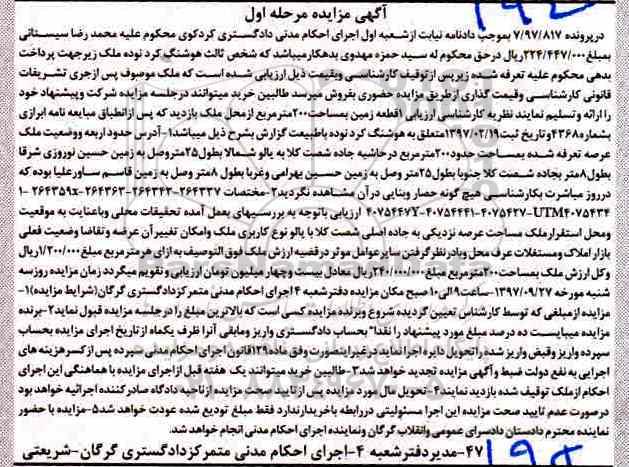 آگهی مزایده مرحله اول
درپرونده ۷/۹۷/۸۱۷ بموجب دادنامه نیابت ازشعبه اول اجرای احکام مدنی دادگستری کردکوی محکوم علیه محمد رضا سیستانی
بمبلغ۲۲۴/۴۴۷/۰۰۰ریال درحق محکوم له سید حمزه مهدوی بدهکارمیباشد که شخص ثالث هوشنگ کرد نوده ملک زیرجهت پرداخت
بدهی محکوم علیه تعرفه شده زیرپس ازتوقیف کارشناسی وبقیمت ذیل ارزیابی شده است که ملک موصوف پس ازجری تشریفات
قانونی کارشناسی وقیمت گذاری ازطریق مزایده حضوری بفروش میرسد طالبین خرید میتوانند درجلسه مزایده شرکت وپیشنهاد خود
را ارائه وتسلیم نمایند نظریه کارشناسی ارزیابی ۱قطعه زمین بمساحت۲۰۰مترمربع ازمحل ملک بازدید که پس ازانطباق مبایعه نامه ابرازی
بشماره۴۳۶۸و تاریخ ثبت۱۳۹۷/۰۲/۱۹متعلق به هوشنگ کرد نوده باطبیعت گزارش بشرح ذیل میباشد۱-آدرس حدود اربعه ووضعیت ملک
عرصه تعرفه شده بمساحت حدود۲۰۰مترمربع درحاشیه جاده شصت کلا به یالو شمالا بطول۲۵متروصل به زمین حسین نوروزی شرقا
بطول۸متر بجاده شصت کلا جنوبا بطول۲۵متر وصل به زمین حسین بهرامی وغربا بطول ۸متر وصل به زمین قاسم ساورعلیا بوده که
درروز مباشرت بکارشناسی هیچ گونه حصار وبنایی درآن مشاهده نگردید۲-مختصات ۲۶۴۳۳۷-۲۶۴۳۴۲-۲۶۴۳۶۳-۲۶۴۳۵۹x-۱
UTM۴۰۷۵۴۳۴-۴۰۷۵۴۲۷-۴۰۷۵۴۴۱-۴۰۷۵۴۴۷Y ارزیابی باتوجه به بررسیهای بعمل آمده تحقیقات محلی وباعنایت به موقعیت
ومحل استقرارملک مساحت عرصه نزدیکی به جاده اصلی شصت کلا با یالو نوع کاربری ملک وامکان تغییرآن عرضه وتقاضا وضعیت فعلی
بازار املاک ومستغلات عرف محل وبادرنظرگرفتن سایرعوامل موثر درقضیه ارزش ملک فوق التوصیف به ازای هرمترمربع مبلغ ۱/۲۰۰/۰۰۰ریال
وکل ارزش ملک بمساحت۲۰۰مترمربع مبلغ۲۴۰/۰۰۰/۰۰۰ریال معادل بیست وچهار میلیون تومان ارزیابی وتقویم میگردد زمان مزایده روزسه
شنبه مورخه ۱۳۹۷/۰۹/۲۷-ساعت۹الی۱۰صبح مکان مزایده دفترشعبه ۴اجرای احکام مدنی متمرکزدادگستری گرگان(شرایط مزایده)۱-
مزایده ازمبلغی که توسط کارشناس تعیین گردیده شروع وبرنده مزایده کسی است که بالاترین مبلغ را درجلسه مزایده قبول نماید۲-برنده
مزایده میبایست ده درصد مبلغ مورد پیشنهاد را نقدا" بحساب دادگستری واریز ومابقی آنرا ظرف یکماه از تاریخ اجرای مزایده بحساب
سپرده واریز وقبض واریز شده راتحویل دایره اجرا نماید درغیراینصورت وفق ماده۱۲۹قانون اجرای احکام مدنی سپرده پس ازکسرهزینه های
اجرایی به نفع دولت ضبط و آگهی مزایده تجدید خواهد شد۳-طالبین خرید میتوانند یک هفته قبل ازاجرای مزایده با هماهنگی این اجرای
احکام ازملک توقیف شده بازدید نمایند۴-تحویل مال مورد مزایده پس ازتایید صحت مزایده ازناحیه دادگاه صادرکننده اجرائیه خواهد بود
درصورت عدم تایید صحت مزایده این اجرا مسئولیتی دررابطه باخریدارندارد فقط مبلغ تودیع شده عودت خواهد شد۵-مزایده با حضور
نماینده محترم دادستان دادسرای عمومی وانقلاب گرگان ونماینده اجرای احکام مدنی انجام خواهد شد.
۴۷-مدیردفترشعبه ۴-اجرای احکام مدنی متمرکزدادگستری گرگان-شریعتی